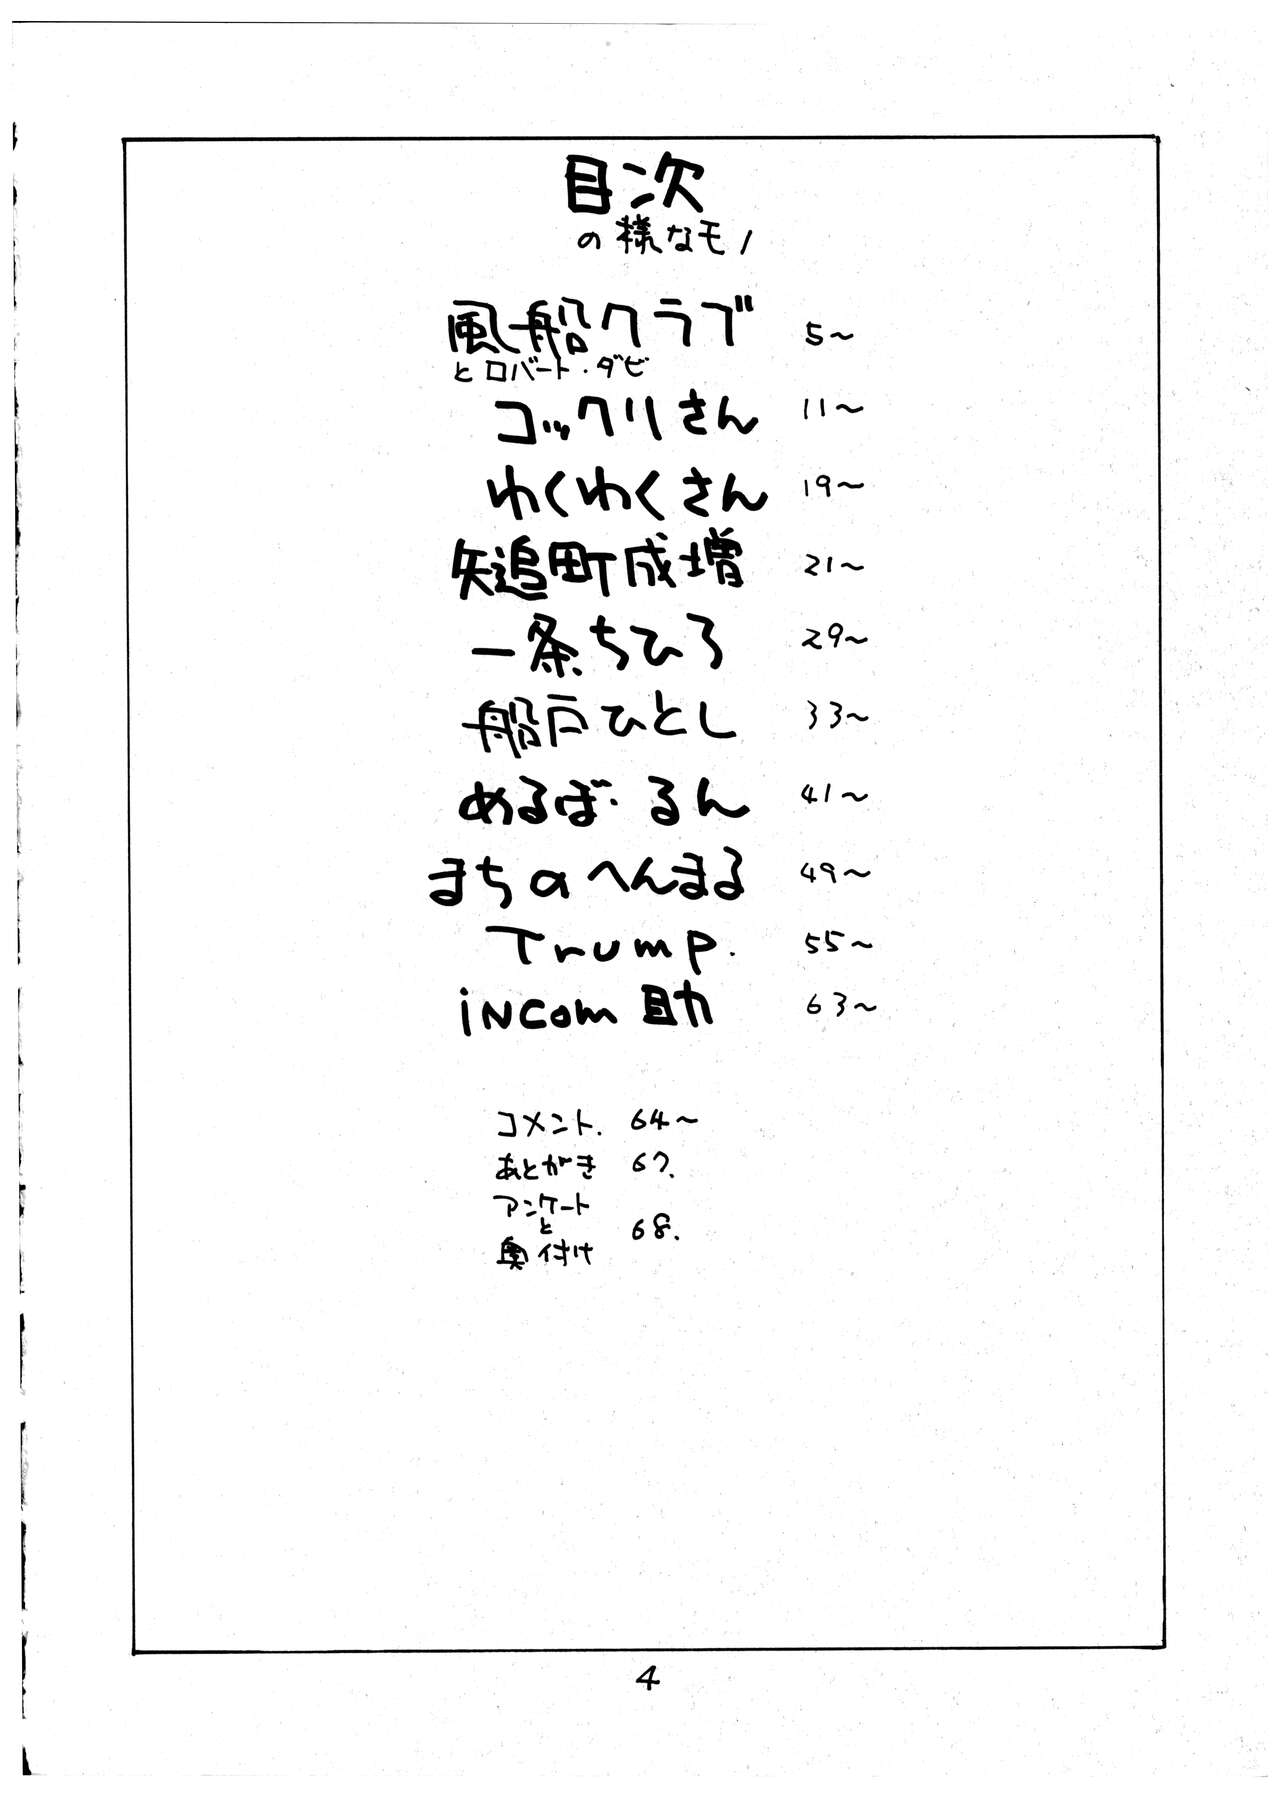 目次
の様なモノ
風船クラブ 5～
とロバート・ダビ
コックリさん 11～
わくわくさん 19～
矢追町成増 21～
一条ちひろ 29～
船戸ひとし 33～
めるぼ・るん 41～
まちのへんまる 49～
Trump. 55～
iNCom助 63～
コメント. 64～
あとがき 67.
アンケート
と 68.
奥付け
4